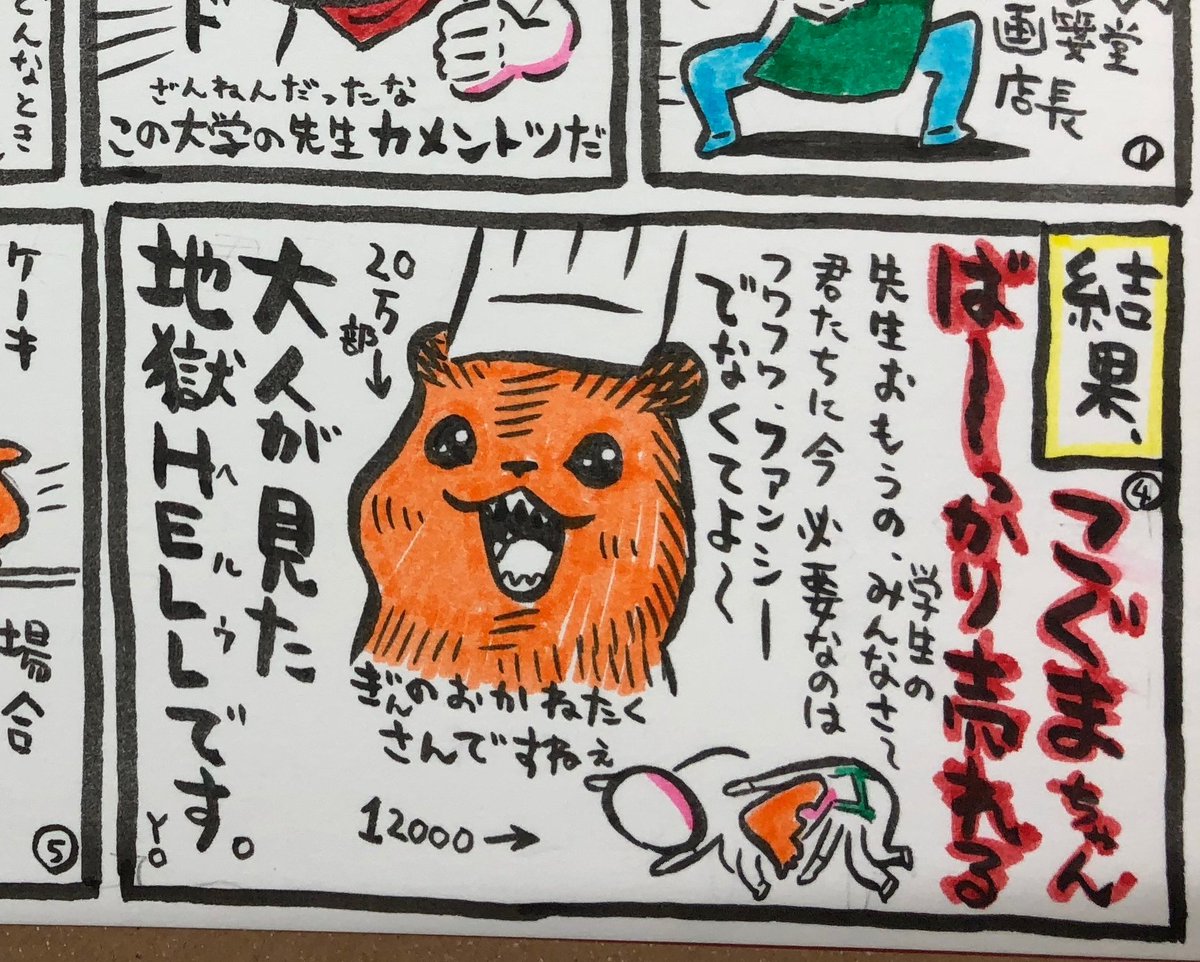 画
店長
①
ドー
ざんねんだったな
この大学の先生カメントツだ
んなとき
結果、
④
こぐまちゃん
ばーーっかり売れる
先生おもうの、みんなさ〜
学生の
君たちに今必要なのは
フワフワ、ファンシー
でなくてよ〜
20万部↓
ぎんのおかねたく
さんですねぇ
12000→
大人が見た
地獄HELLです。
ヘルゥ
YO
ケーキ
場合
⑤